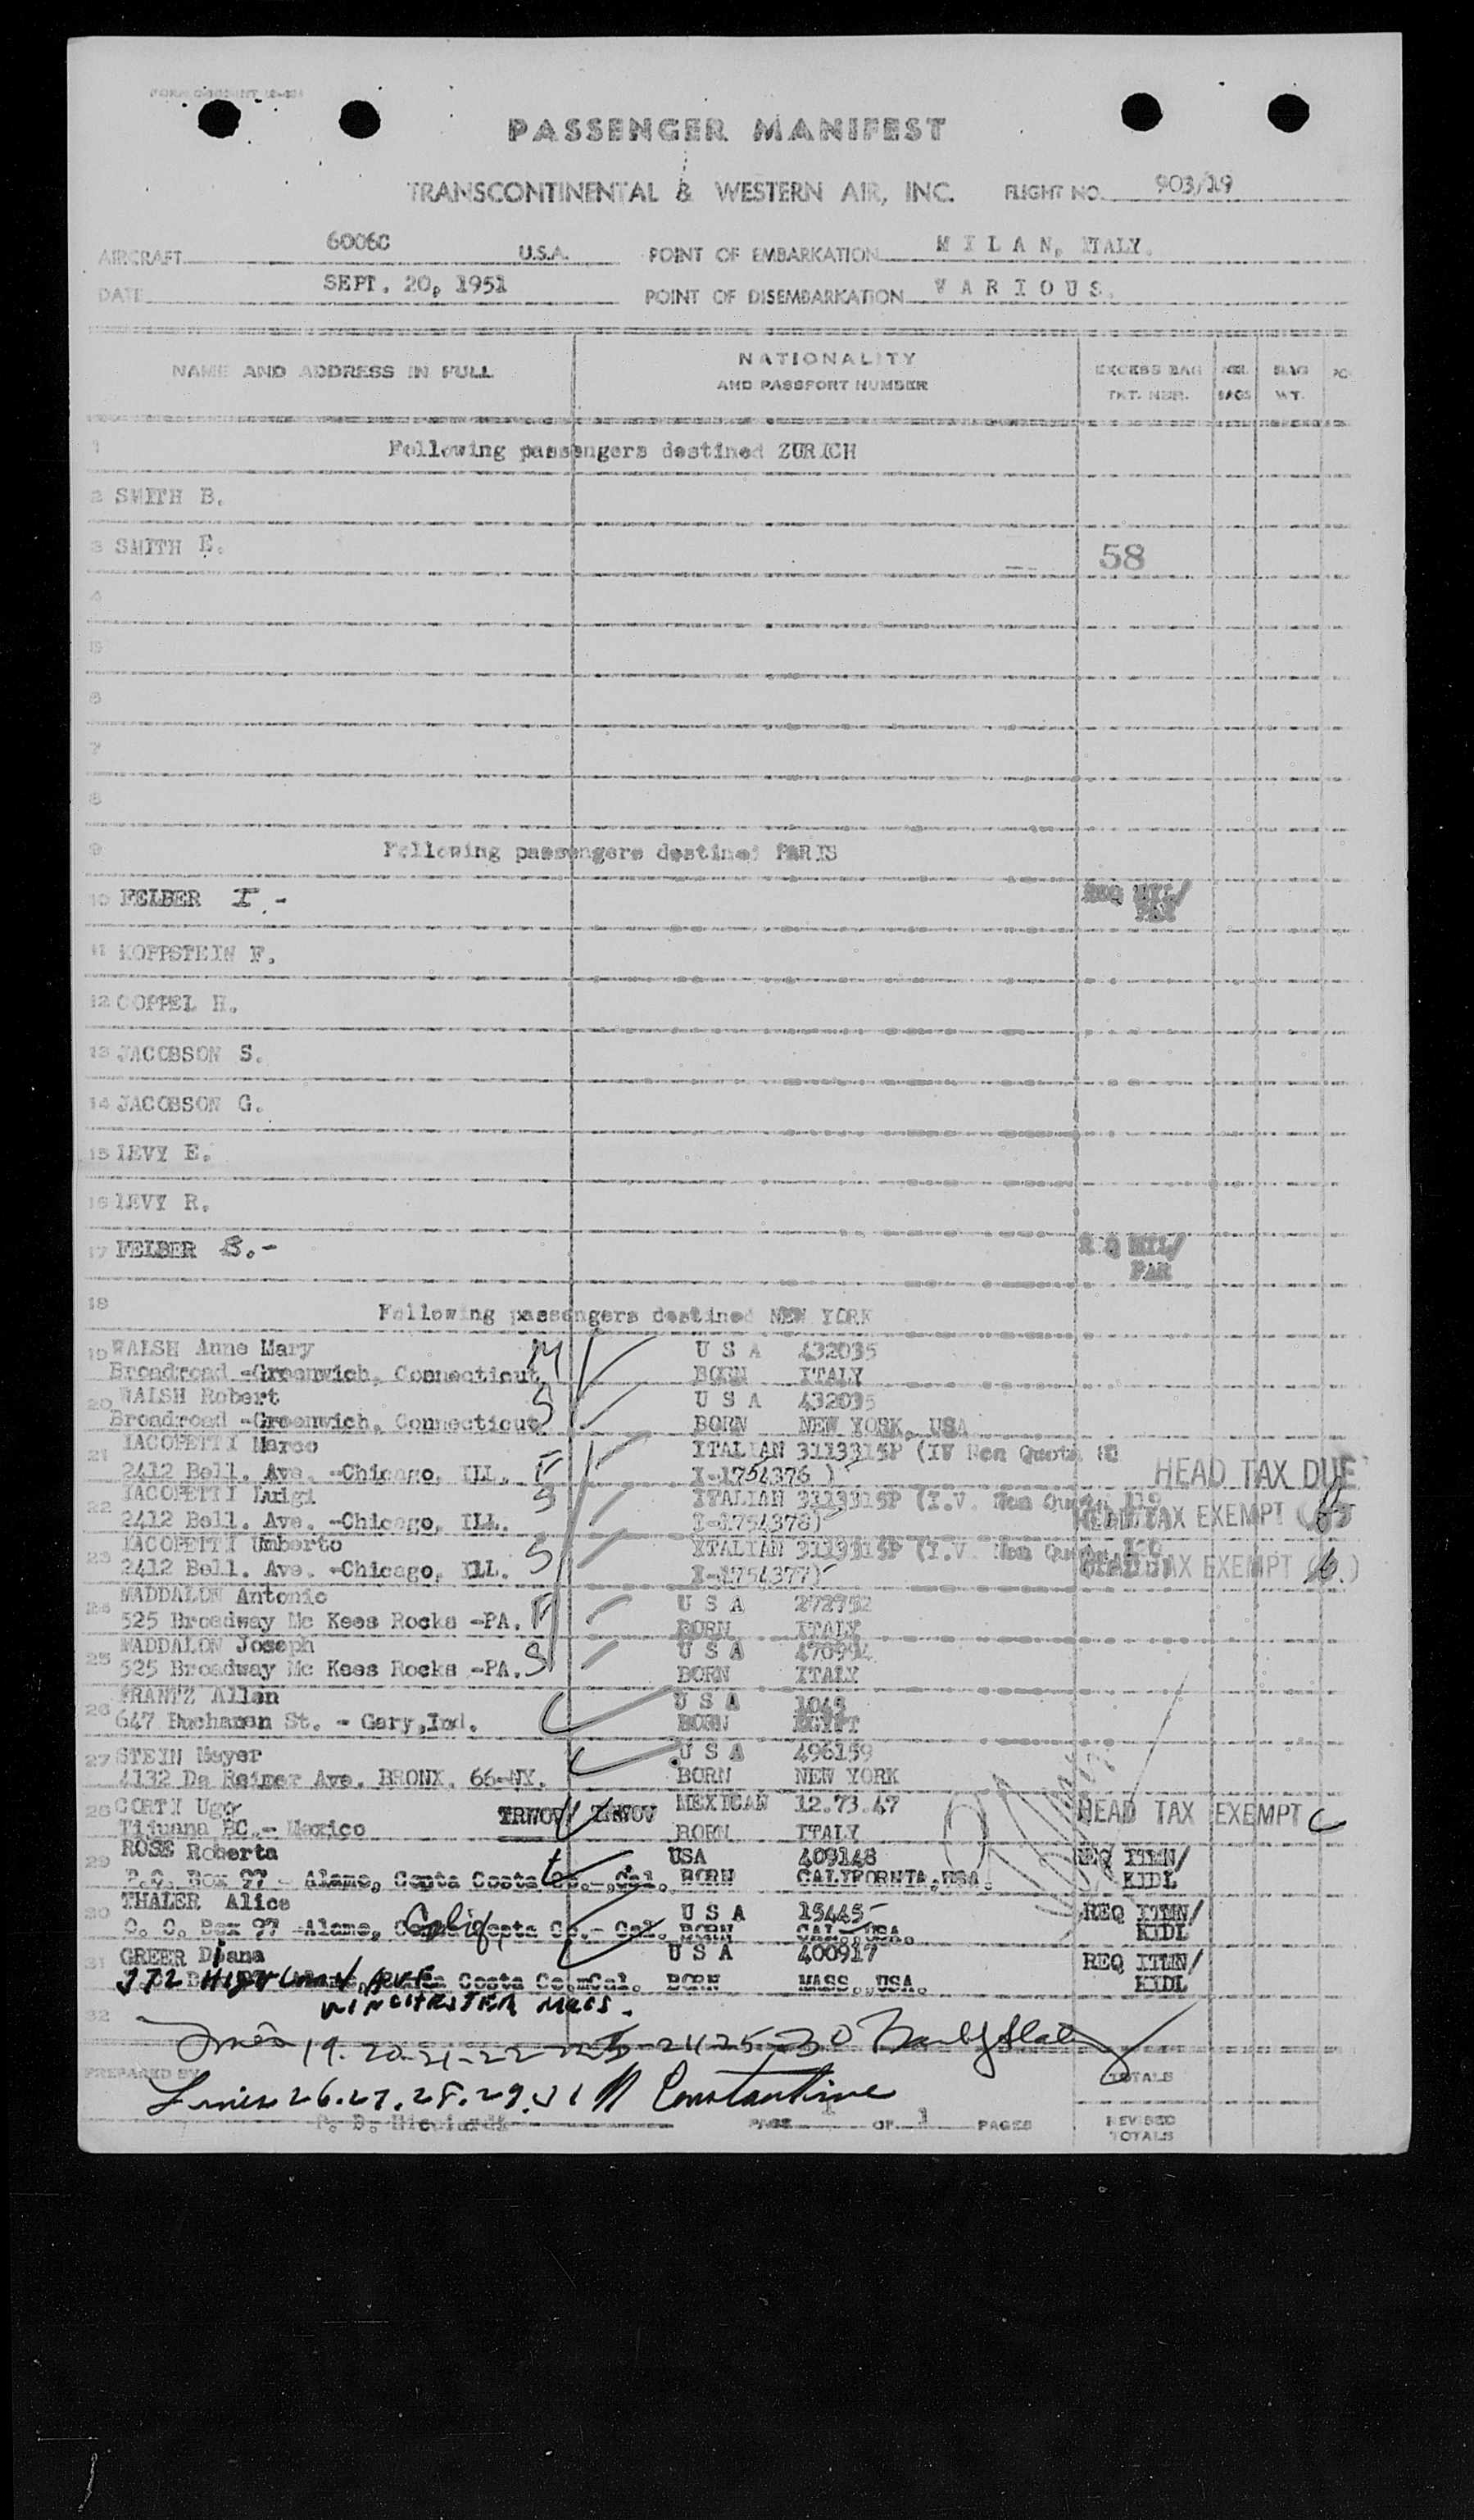 PASSENGER MANIFEST
TRANSCONTINENTAL & WESTERN AIR, INC. FLIGHT NO. 903/19
AIRCRAFT 6006C U.S.A. POINT OF EMBARKATION M I L A N, ITALY.
DATE SEPT. 20, 1951 POINT OF DISEMBARKATION V A R I O U S.
NAME AND ADDRESS IN FULL NATIONALITY AND PASSPORT NUMBER EXCESS BAG TKT. NBR. NBR. BAGS BAG WT.
1 Following passengers destined ZURICH
2 SMITH B.
3 SMITH E. 58
4
5
6
7
8
9 Following passengers destined PARIS
10 FELBER I.- REQ MIL/
PAR
11 KOPPSTEIN F.
12 COPPEL H.
13 JACOBSON S.
14 JACOBSON G.
15 LEVY E.
16 LEVY R.
17 FELBER S.- R Q MIL/
PAR
18 Following passengers destined NEW YORK
19 WALSH Anne Mary M U S A 432035
Broadroad -Greenwich, Connecticut BORN ITALY
20 WALSH Robert S U S A 432035
Broadroad -Greenwich, Connecticut BORN NEW YORK, USA
21 IACOPETTI Marco ITALIAN 3113315P (IV Non Quota
2412 Bell. Ave. -Chicago, ILL. F I-1754376 ) HEAD TAX DUE
22 IACOPETTI Luigi S ITALIAN 3113315P (I.V. Non Quota
2412 Bell. Ave. -Chicago, ILL. I-1754378) HEAD TAX EXEMPT
23 IACOPETTI Umberto S ITALIAN 3113315P (I.V. Non Quota
2412 Bell. Ave. -Chicago, ILL. I-1754377) HEAD TAX EXEMPT
24 WADDALON Antonio F U S A 272752
525 Broadway Mc Kees Rocks -PA. BORN ITALY
25 WADDALON Joseph S U S A
525 Broadway Mc Kees Rocks -PA. BORN ITALY
26 FRANTZ Allan U S A 1048
647 Buchanan St. - Gary,Ind. BORN EGYPT
27 STEIN Meyer U S A 496159
4132 De Reimer Ave. BRONX. 66-NY. BORN NEW YORK
28 CORTI Ugo TRWOV TRWOV MEXICAN 12.73.47 HEAD TAX EXEMPT C
Tijuana BC.- Mexico BORN ITALY
29 ROSE Roberta USA 409148 REQ ITMN/
P.O. Box 97 - Alamo, Contra Costa Co.-,Cal. BORN CALIFORNIA,USA. KIDL
30 THALER Alice U S A 15445 REQ ITMN/
O. O. Box 97 -Alamo, Costa Co.- Cal. BORN CAL.-USA. KIDL
Calif
31 GREER Diana U S A 400917 REQ ITMN/
Costa Co. Cal. BORN MASS.,USA. KIDL
372 Highland Ave
WINCHESTER MASS.
32
Lines 19. 20-21-22-23-24-25-30
PREPARED BY TOTALS
Lines 26.27.28.29.31 Constantine
PAGE 1 OF 1 PAGES REVISED
TOTALS